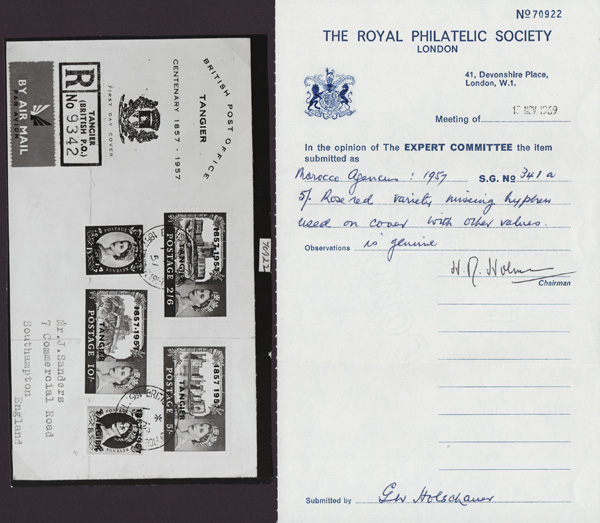 BY AIR MAIL
PAR AVION
R
TANGIER
(BRITISH P.O.)
No 9342
FIRST DAY COVER
CENTENARY 1857 - 1957
TANGIER
BRITISH POST OFFICE
POSTAGE
REVENUE
1857-1957
TANGIER
POSTAGE 2/6
70922
1857-1957
TANGIER
POSTAGE 10/-
1857 1957
TANGIER
POSTAGE 5/-
Mr. J. Sanders
7 Commercial Road
Southampton
England
No 70922
THE ROYAL PHILATELIC SOCIETY
LONDON
41, Devonshire Place,
London, W.1.
Meeting of NOV 1969
In the opinion of The EXPERT COMMITTEE the item
submitted as
Morocco Agencies: 1957 S.G. No 341a
5/- Rose red variety missing hyphen
used on cover with other values.
Observations is genuine
Chairman
Submitted by